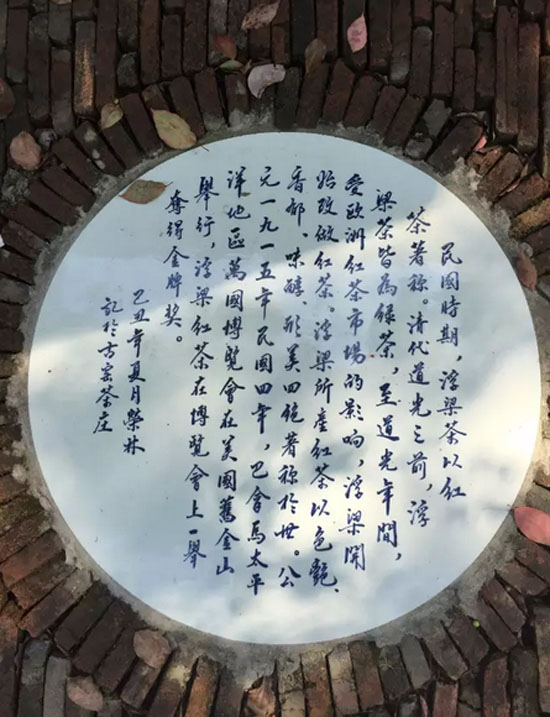 民國時期，浮梁茶以紅
茶著称。清代道光之前，浮
梁茶皆為绿茶，至道光年間，
受歐洲红茶市場的影响，浮梁開
始改做红茶。浮梁所產红茶以色艷、
香郁、味醇、形美四絕著称於世。公
元一九一五年民國四年，巴拿馬太平
洋地區萬國博覽會在美國舊金山
舉行，浮梁红茶在博覽會上一舉
奪得金牌奖。
己丑年夏月榮林
記於古窑茶庄